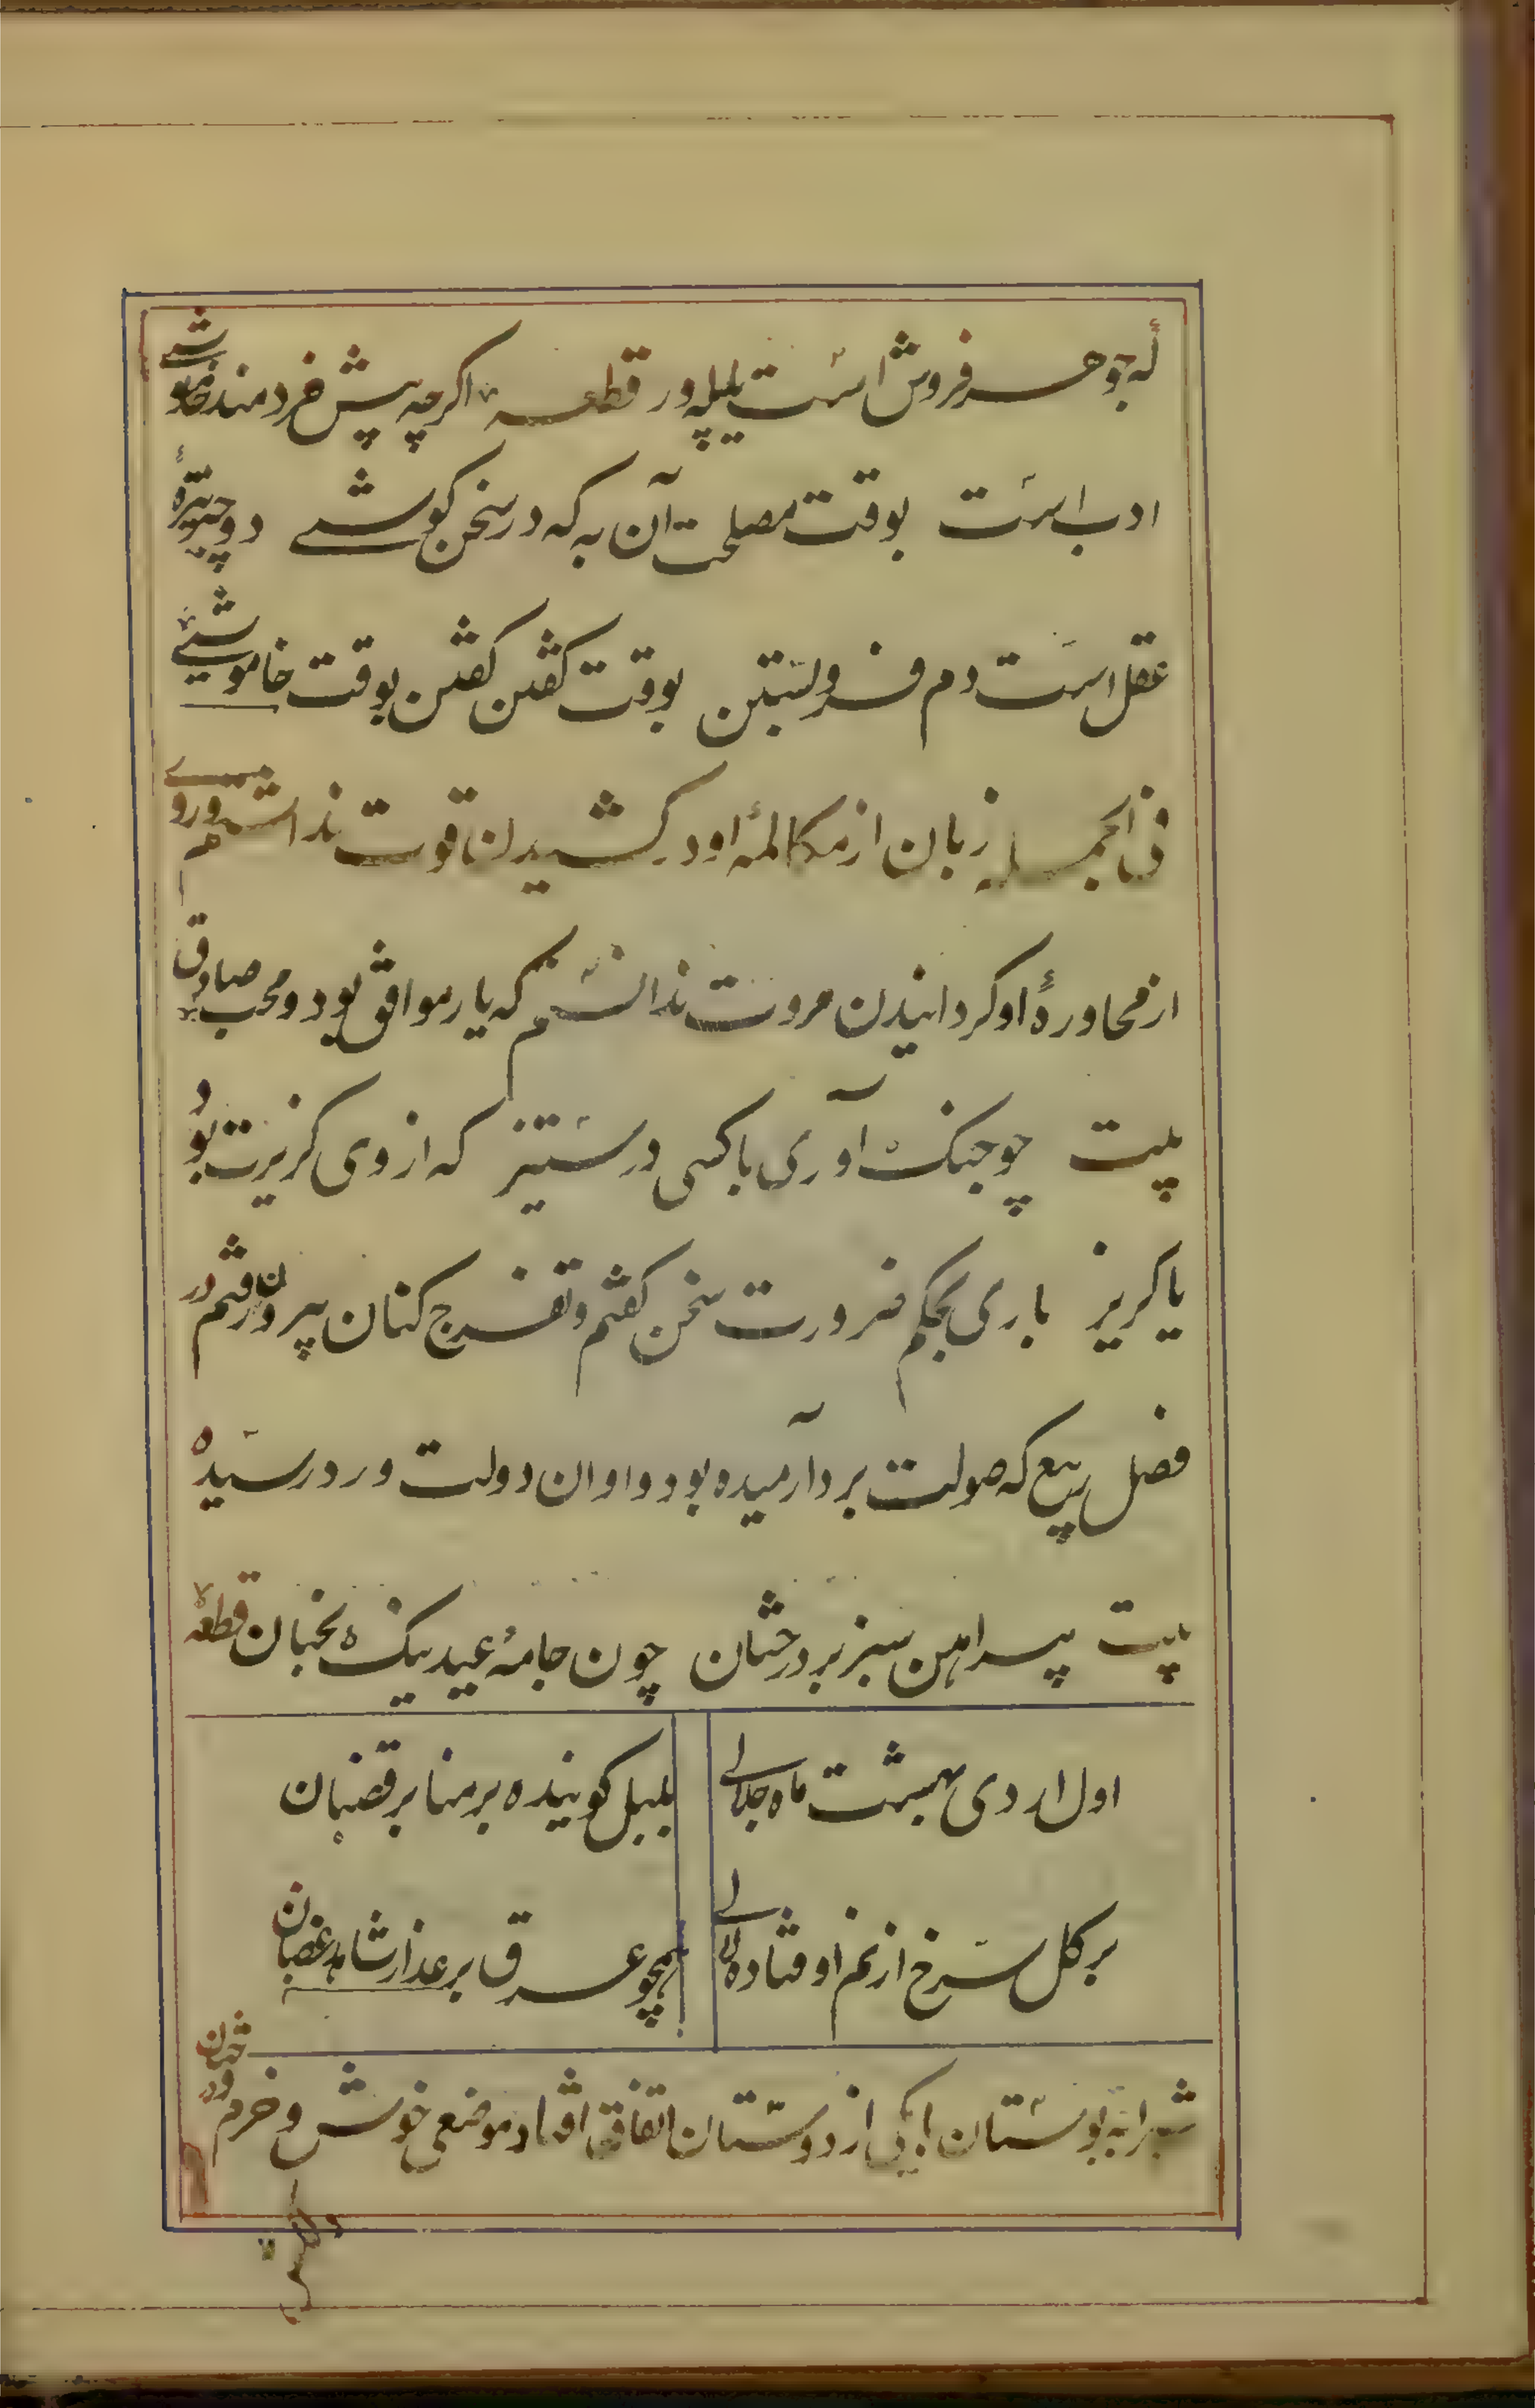 که جوهر فروش است یا پیله ور قطعه اکرچه پیش خردمند خاموشی
ادب است بوقت مصلحت آن به که در سخن کوشی دو چیز تیرهٔ
عقل است دم فرو بستن بوقت کفتن کفتن بوقت خاموشی
فی الجمله زبان از مکالمهٔ او در کشیدن قوت نداشتم و روی
از محاورهٔ او کردانیدن مروت ندانستم که یار موافق بود و محب صادق
بیت چو جنک آوری با کسی در ستیز که از وی کزیرت بود
یا کریز باری بحکم ضرورت سخن کفتم و تفرج کنان بیرون رفتم در
فصل ربیع که صولت برد آرمیده بود و اوان دولت ورد رسیده
بیت پیراهن سبز بر درختان چون جامهٔ عید نیک بختان قطعه
اول اردی بهشت ماه جلالی بلبل کوینده بر منابر قضبان
بر کل سرخ از نم اوفتاده لالی همچو عرق بر عذار شاهد غضبان
شب را به بوستان با یکی از دوستان اتفاق افتاد موضعی خوش و خرم و درختان